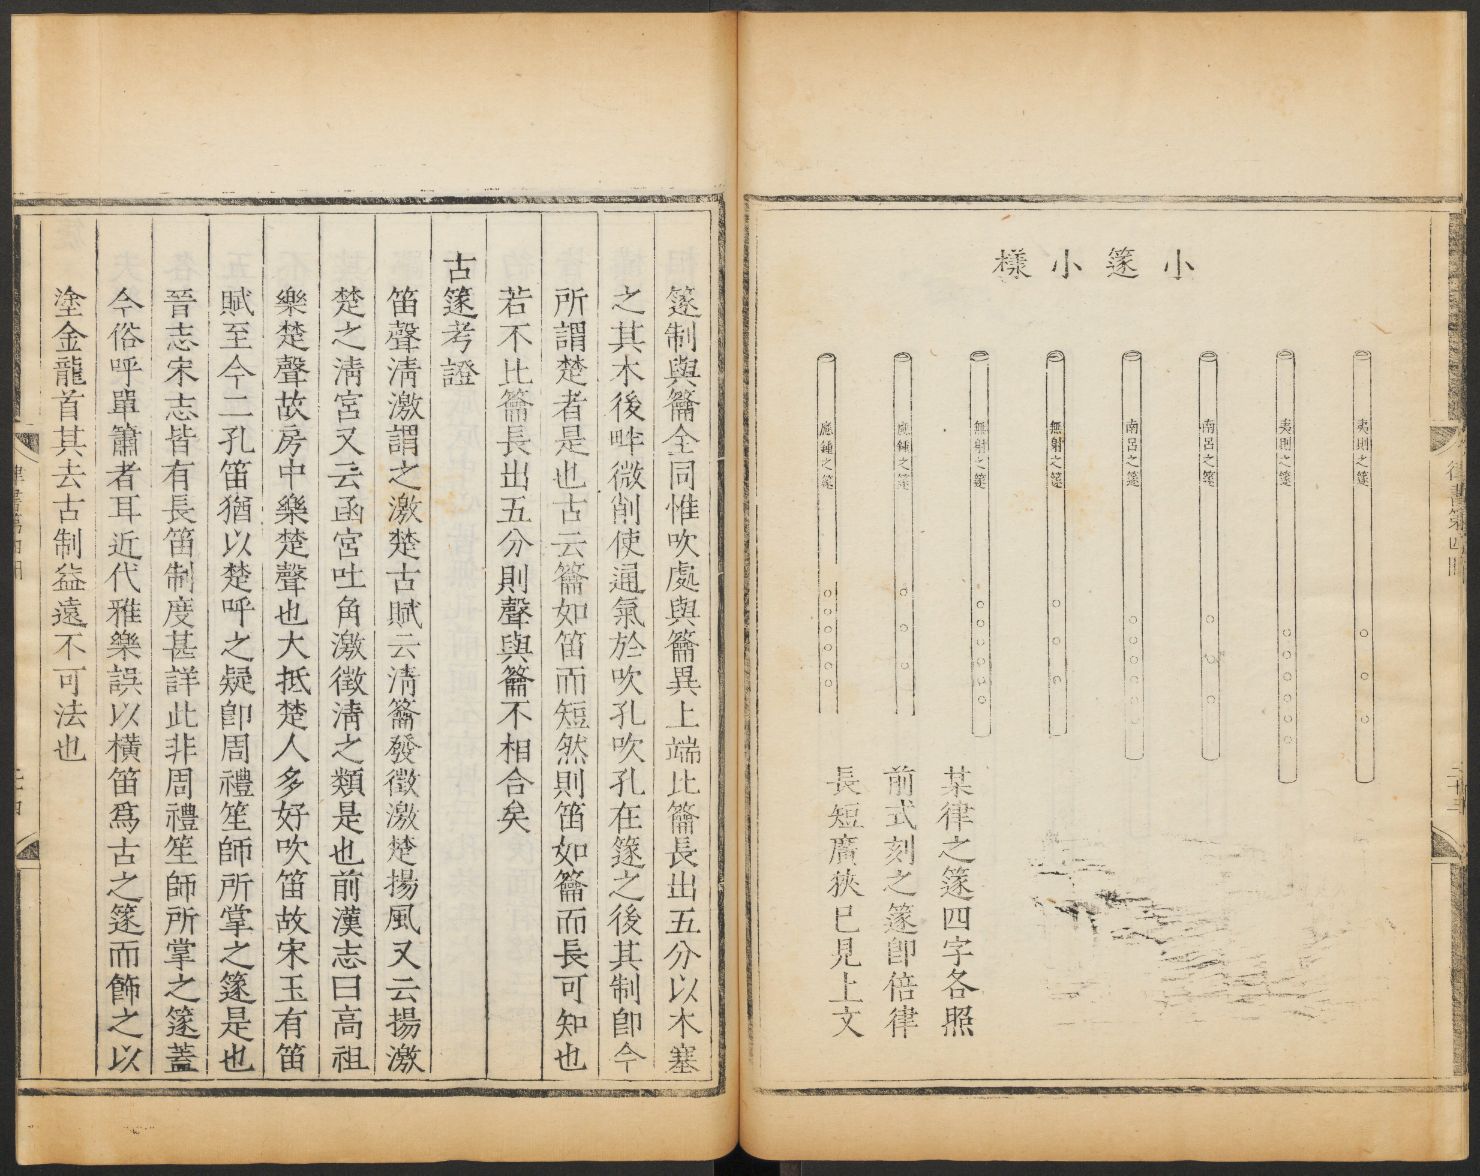 小篴小樣
夷則之篴
夷則之篴
南呂之篴
南呂之篴
無射之篴
無射之篴
應鍾之篴
應鍾之篴
某律之篴四字各照
前式刻之篴卽倍律
長短廣狹已見上文
篴制與籥全同惟吹處與籥異上端比籥長出五分以木塞
之其木後畔微削使通氣於吹孔吹孔在篴之後其制卽今
所謂楚者是也古云籥如笛而短然則笛如籥而長可知也
若不比籥長出五分則聲與籥不相合矣
古篴考證
笛聲淸激謂之激楚古賦云淸籥發徵激楚揚風又云揚激
楚之淸宮又云函宮吐角激徵淸之類是也前漢志曰高祖
樂楚聲故房中樂楚聲也大抵楚人多好吹笛故宋玉有笛
賦至今二孔笛猶以楚呼之疑卽周禮笙師所掌之篴是也
晉志宋志皆有長笛制度甚詳此非周禮笙師所掌之篴蓋
今俗呼單簫者耳近代雅樂誤以橫笛爲古之篴而飾之以
塗金龍首其去古制益遠不可法也